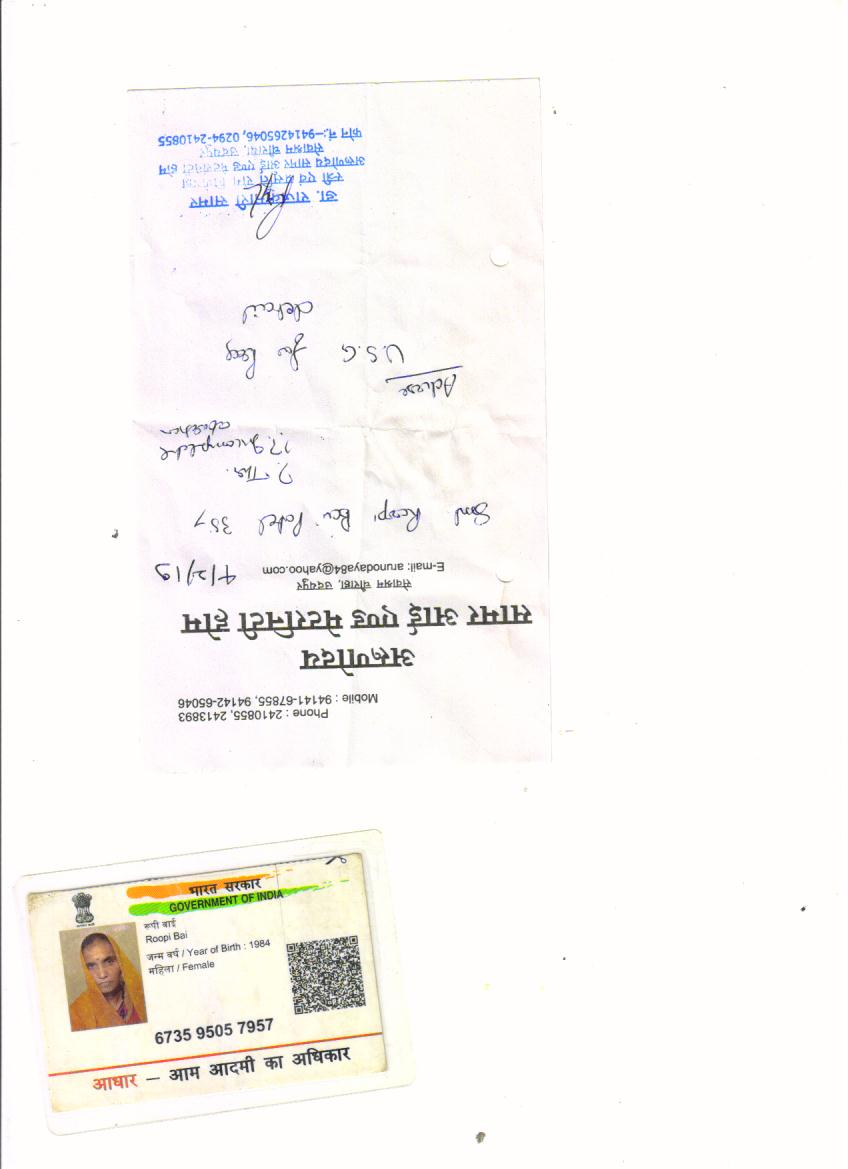 Phone : 2410855, 2413893
Mobile : 94141-67855, 94142-65046
अरूणोदय
सामर आई एण्ड मेटरनिटी होम
सेवाश्रम चौराहा, उदयपुर
E-mail: arunodaya84@yahoo.com
4/2/19
Smt Roopi Bai Patel 35y
?? Incomplete
abortion
Advise
U.S.G. for
detail
डा. राजकुमारी सामर
स्त्री एवं प्रसूति रोग
अरूणोदय सामर आई एण्ड मेटरनिटी होम
सेवाश्रम चौराहा, उदयपुर
फोन नं.:–9414265046, 0294-2410855
भारत सरकार
GOVERNMENT OF INDIA
रूपी बाई
Roopi Bai
जन्म वर्ष / Year of Birth : 1984
महिला / Female
6735 9505 7957
आधार – आम आदमी का अधिकार